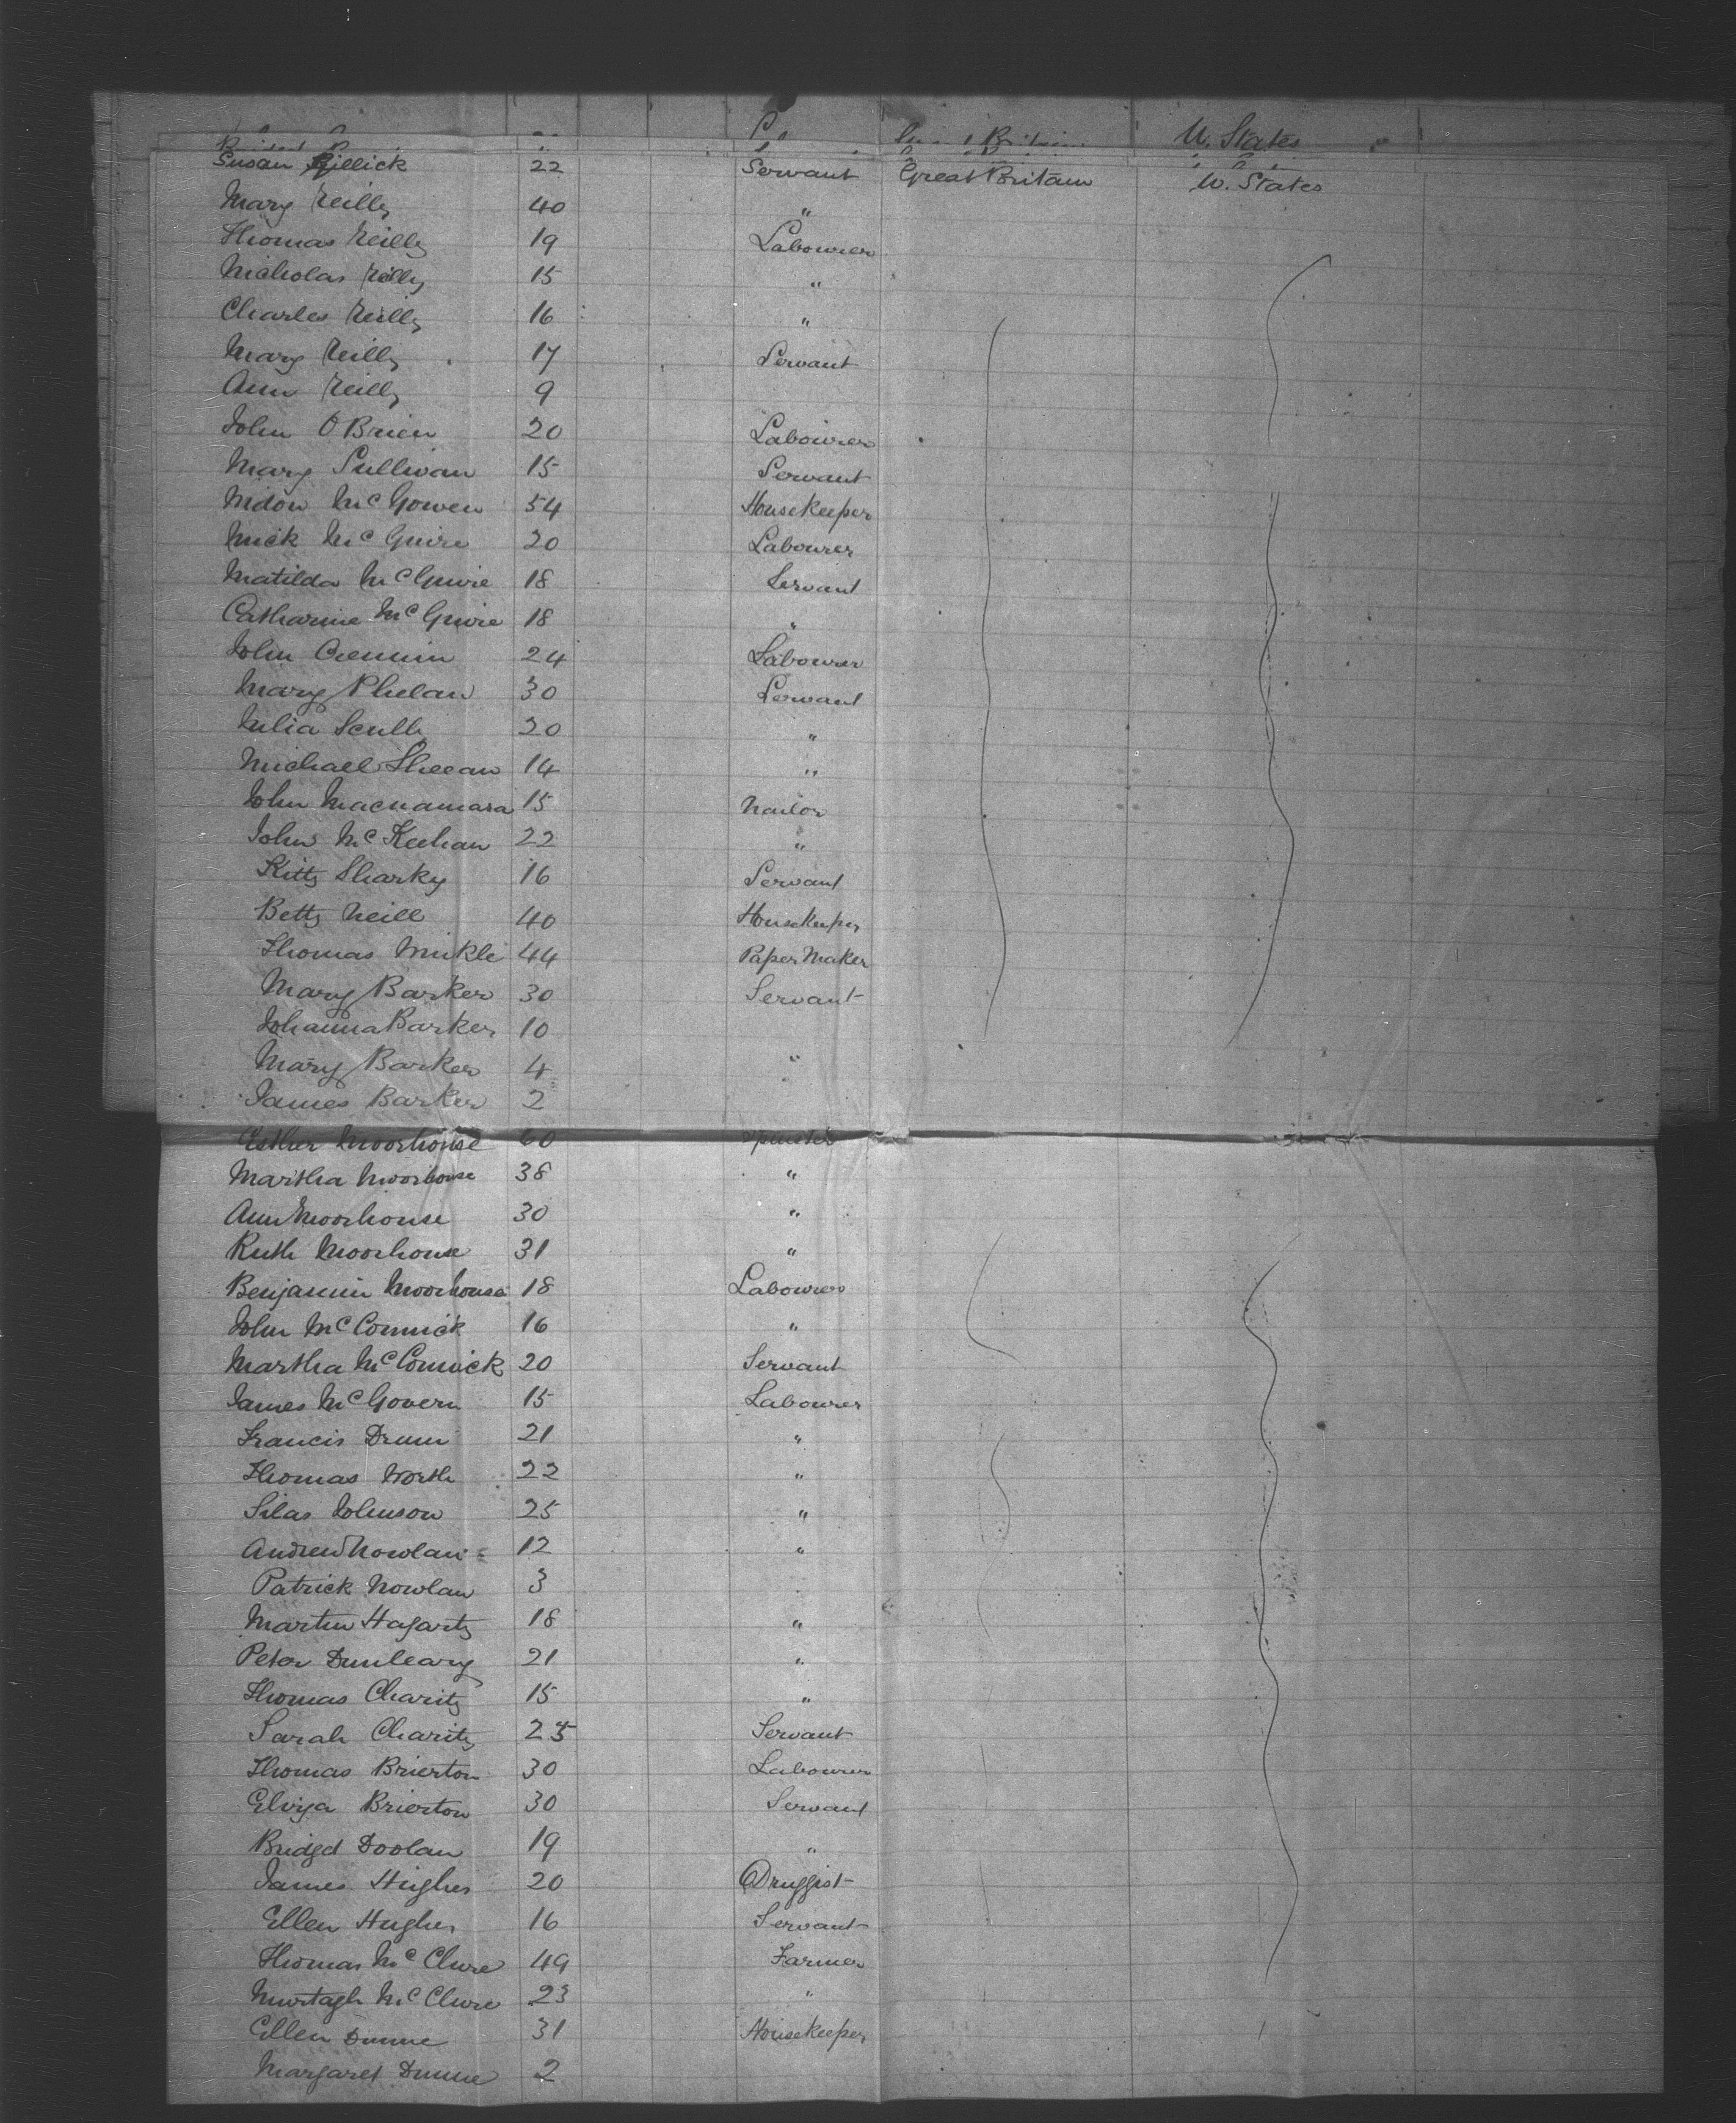 U. States
Susan Gillick 22 Servant Great Britain U. States
Mary Reilly 40 "
Thomas Reilly 19 Labourer
Nicholas Reilly 15 "
Charles Reilly 16 "
Mary Reilly 17 Servant
Ann Reilly 9
John O Brien 20 Labourer
Mary Sullivan 15 Servant
McGowen 54 Housekeeper
Mick McGuire 20 Labourer
Matilda McGuire 18 Servant
Catharine McGuire 18 "
John Cremin 24 Labourer
Mary Phelan 30 Servant
Julia Scully 20 "
Michael Sheean 14 "
John Macnamara 15 Nailor
John McKeehan 22 "
Kitty Sharky 16 Servant
Betty Neill 40 Housekeeper
Thomas 44 Paper Maker
Mary Barker 30 Servant
Johanna Barker 10
Mary Barker 4 "
James Barker 2
Esther Moorhouse 60 Spinster
Martha Moorhouse 38 "
Ann Moorhouse 30 "
Ruth Moorhouse 31 "
Benjamin Moorhouse 18 Labourer
John McCormick 16 "
Martha McCormick 20 Servant
James McGovern 15 Labourer
Francis Drum 21 "
Thomas North 22 "
Silas Johnson 25 "
Andrew Nowlan 12 "
Patrick Nowlan 3
Martin Hagarty 18 "
Peter Dunleavy 21 "
Thomas Charity 15 "
Sarah Charity 25 Servant
Thomas Brierton 30 Labourer
Eliza Brierton 30 Servant
Bridget Doolan 19 "
James Hughes 20 Druggist
Ellen Hughes 16 Servant
Thomas McClure 49 Farmer
Murtagh McClure 23 "
Ellen Dunne 31 Housekeeper
Margaret Dunne 2